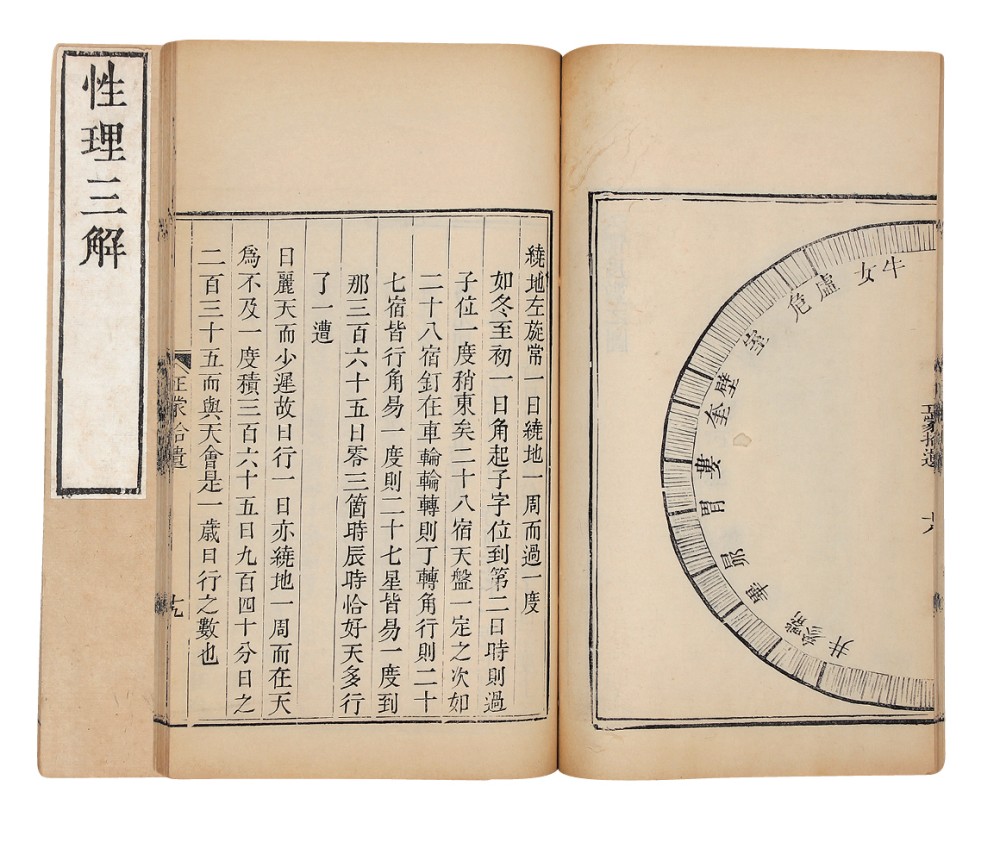 性理三解
牛
女
虛
危
室
壁
奎
婁
胃
昴
畢
觜
參
井
正蒙拾遺
十八
繞地左旋常一日繞地一周而過一度
如冬至初一日角起子字位到第二日時則過
子位一度稍東矣二十八宿天盤一定之次如
二十八宿釘在車輪輪轉則丁轉角行則二十
七宿皆行角易一度則二十七星皆易一度到
那三百六十五日零三箇時辰時恰好天多行
了一遭
日麗天而少遲故日行一日亦繞地一周而在天
爲不及一度積三百六十五日九百四十分日之
二百三十五而與天會是一歲日行之數也
正蒙拾遺
十九